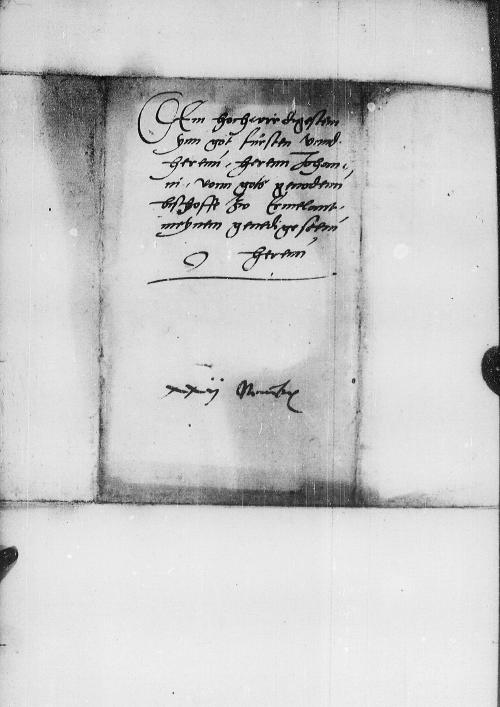 Dem hochwirdigesten
ynn got fursten unnd
herenn, herenn Johan,
ni, vonn gots genodenn
bischoffe zo Ermelant,
meynem genedigestenn
herenn,
xxij Novembris